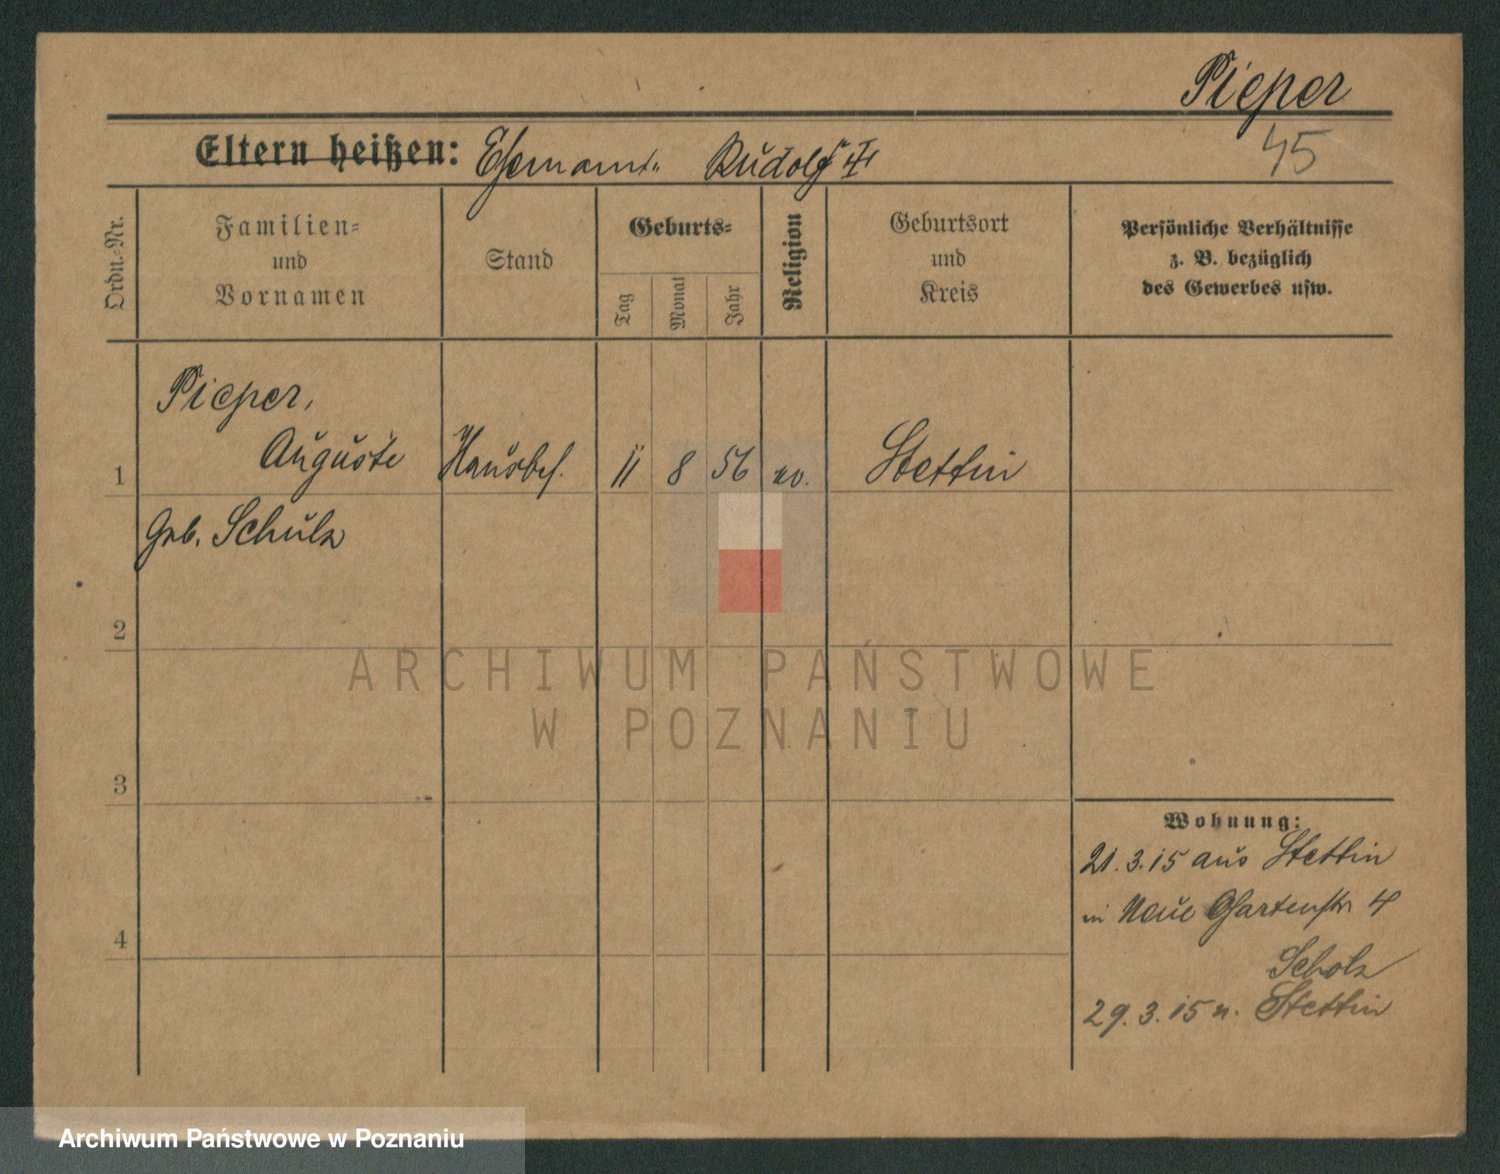 Pieper
45
Eltern heißen: Ehemann: Rudolf
Ordn.-Nr.
Familien-
und
Vornamen
Stand
Geburts-
Tag
Monat
Jahr
Religion
Geburtsort
und
Kreis
Persönliche Verhältnisse
z. B. bezüglich
des Gewerbes usw.
Pieper,
1 Auguste Hausbes. 11 8 56 ev. Stettin
geb. Schulz
2
3
4
Wohnung:
21.3.15 aus Stettin
in Neue Gartenstr 4
Scholz
29.3.15 n. Stettin
ARCHIWUM PAŃSTWOWE
W POZNANIU
Archiwum Państwowe w Poznaniu